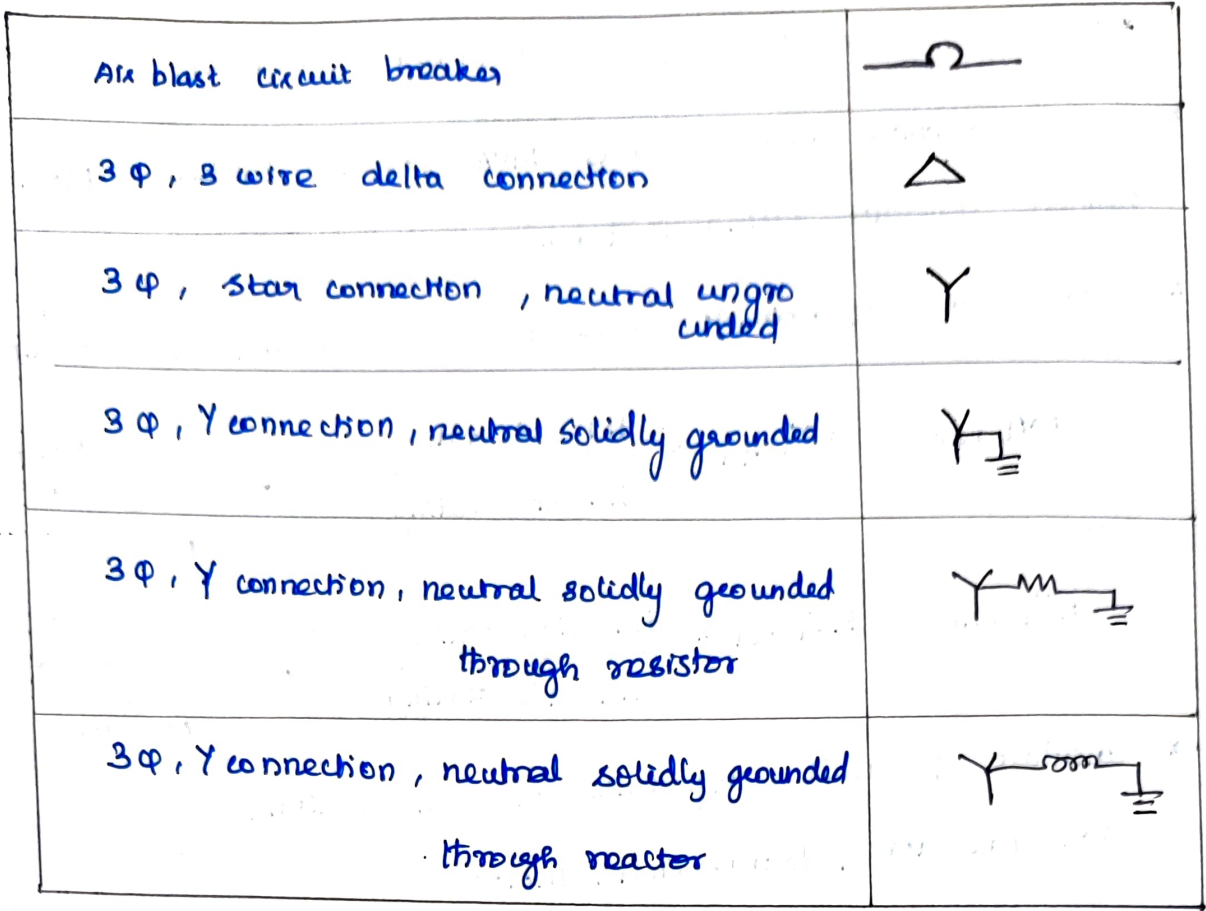 Air blast circuit breaker
3 φ, 3 wire delta connection
3 φ, star connection, neutral ungro
unded
3 φ, Y connection, neutral solidly grounded
3 φ, Y connection, neutral solidly grounded
through resistor
3 φ, Y connection, neutral solidly grounded
through reactor